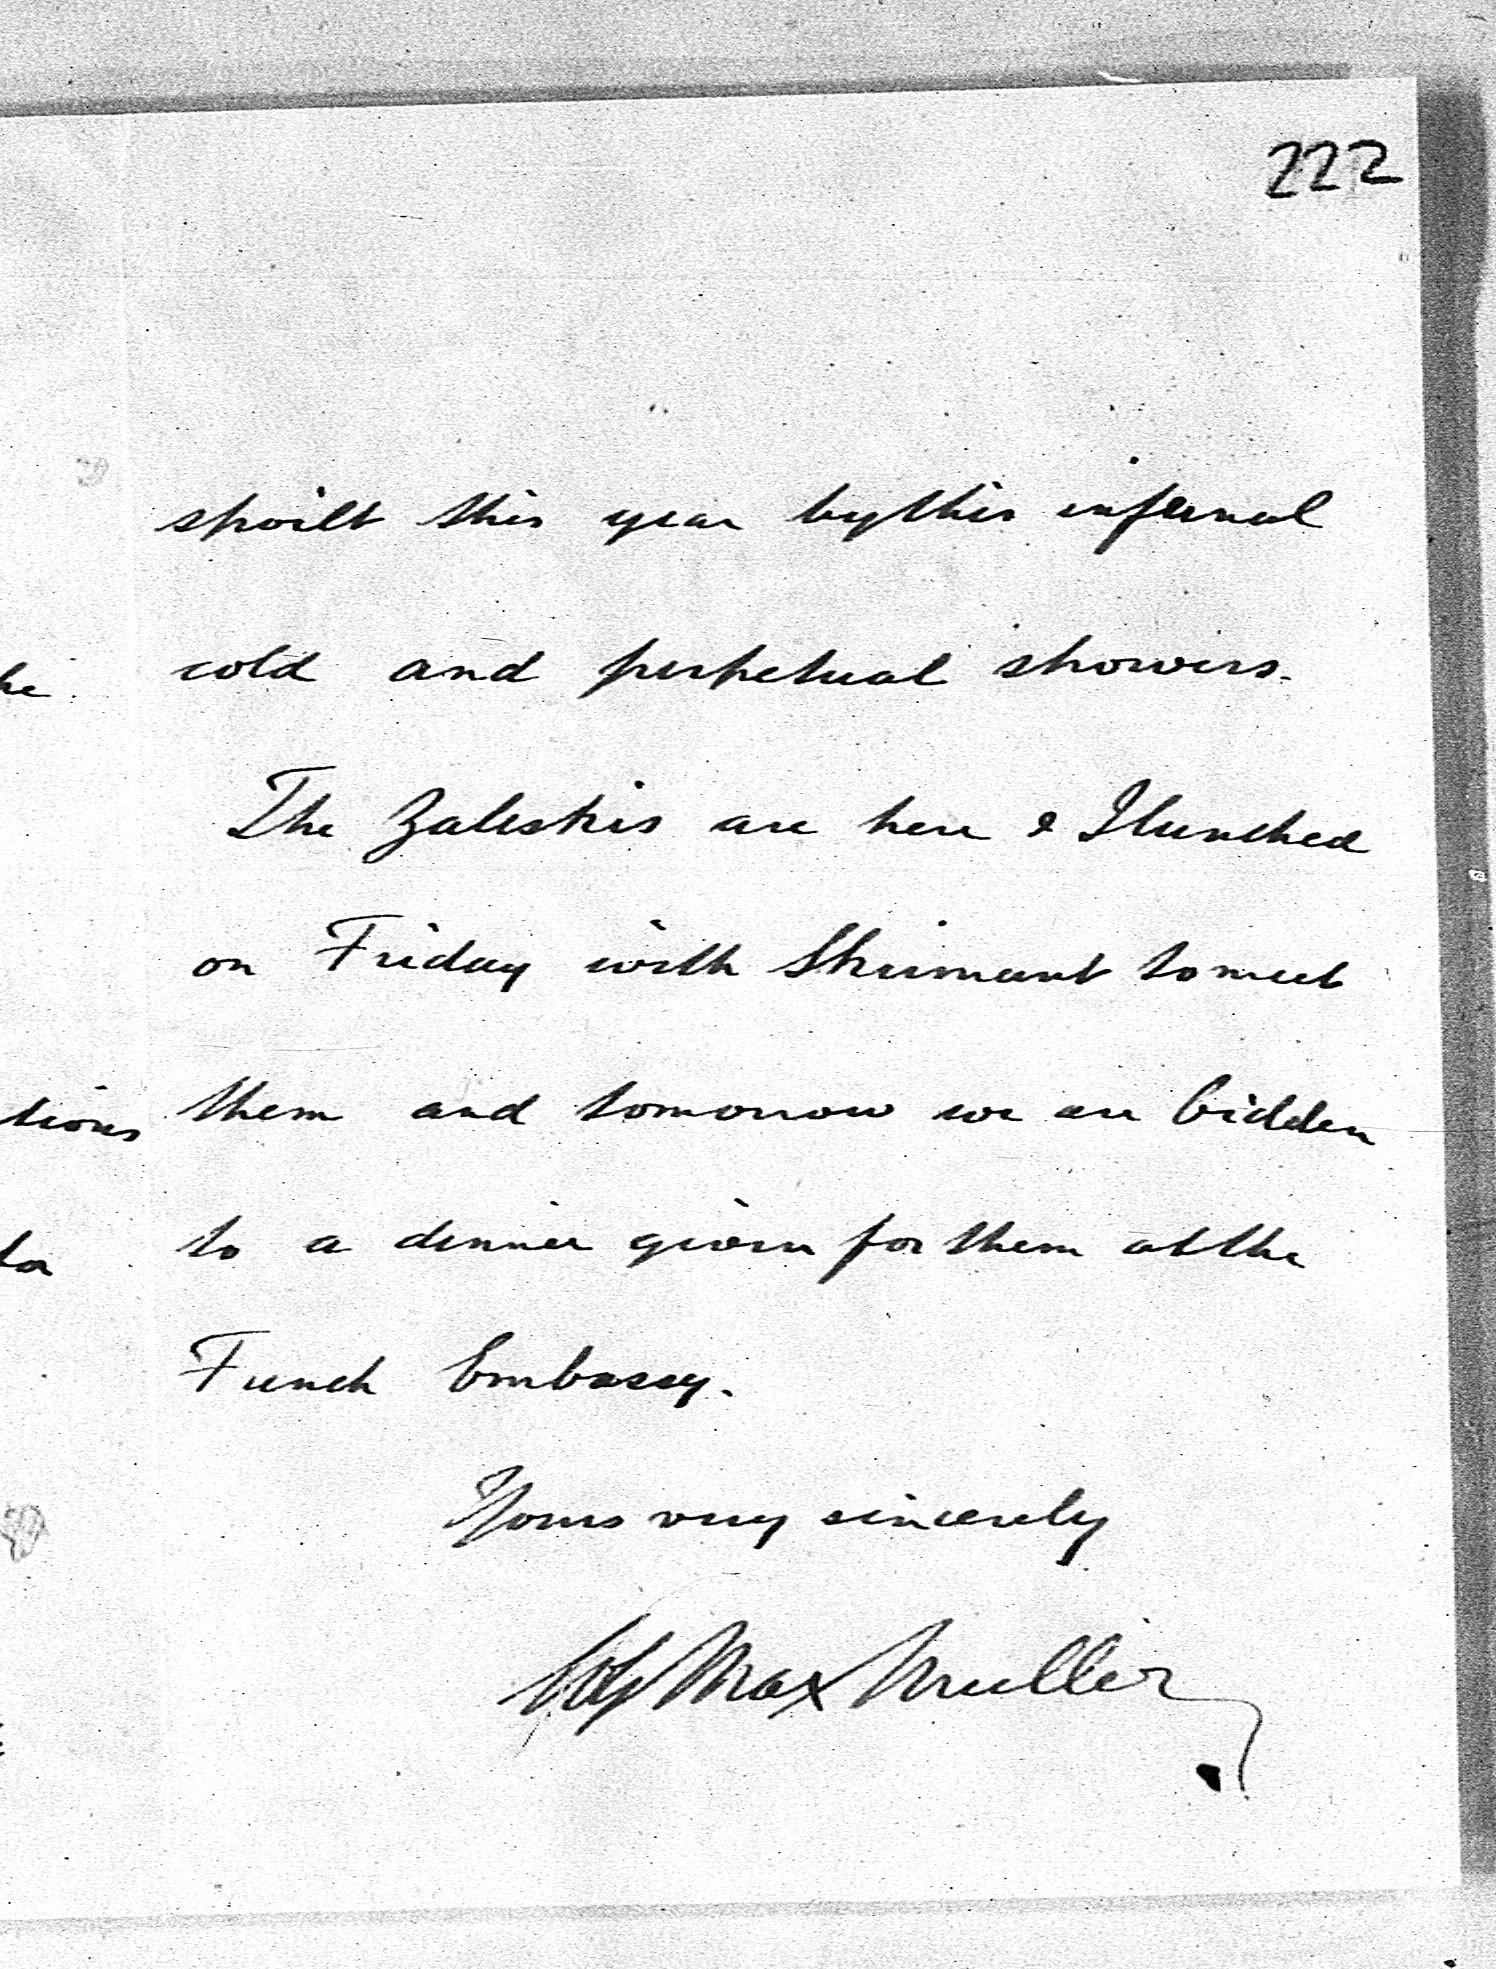 222
spoilt this year by this infernal
cold and perpetual showers.
The Zaleskis are here & I lunched
on Friday with Skirmunt to meet
them and tomorrow we are bidden
to a dinner given for them at the
French Embassy.
Yours very sincerely
WG Max Muller
he
tions
for